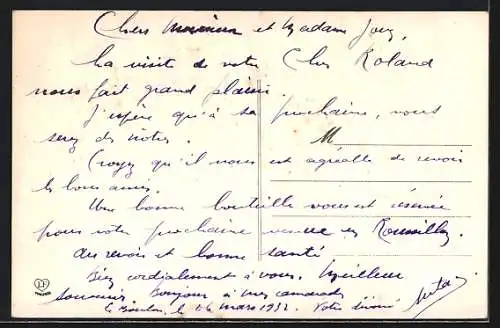 Chers Monsieur et Madame Jouy,
La visite de votre Cher Roland
nous fait grand plaisir.
J'espère qu'à sa prochaine, vous
serez des nôtres.
M
Croyez qu'il nous est agréable de revoir
les bons amis.
Une bonne bouteille vous est réservée
pour votre prochaine venue en Roussillon
Au revoir et bonne santé
Bien cordialement à vous. Meilleur
souvenir Bonjour à mes camarades
le Boulou, le 16 mars 1932. Votre dévoué